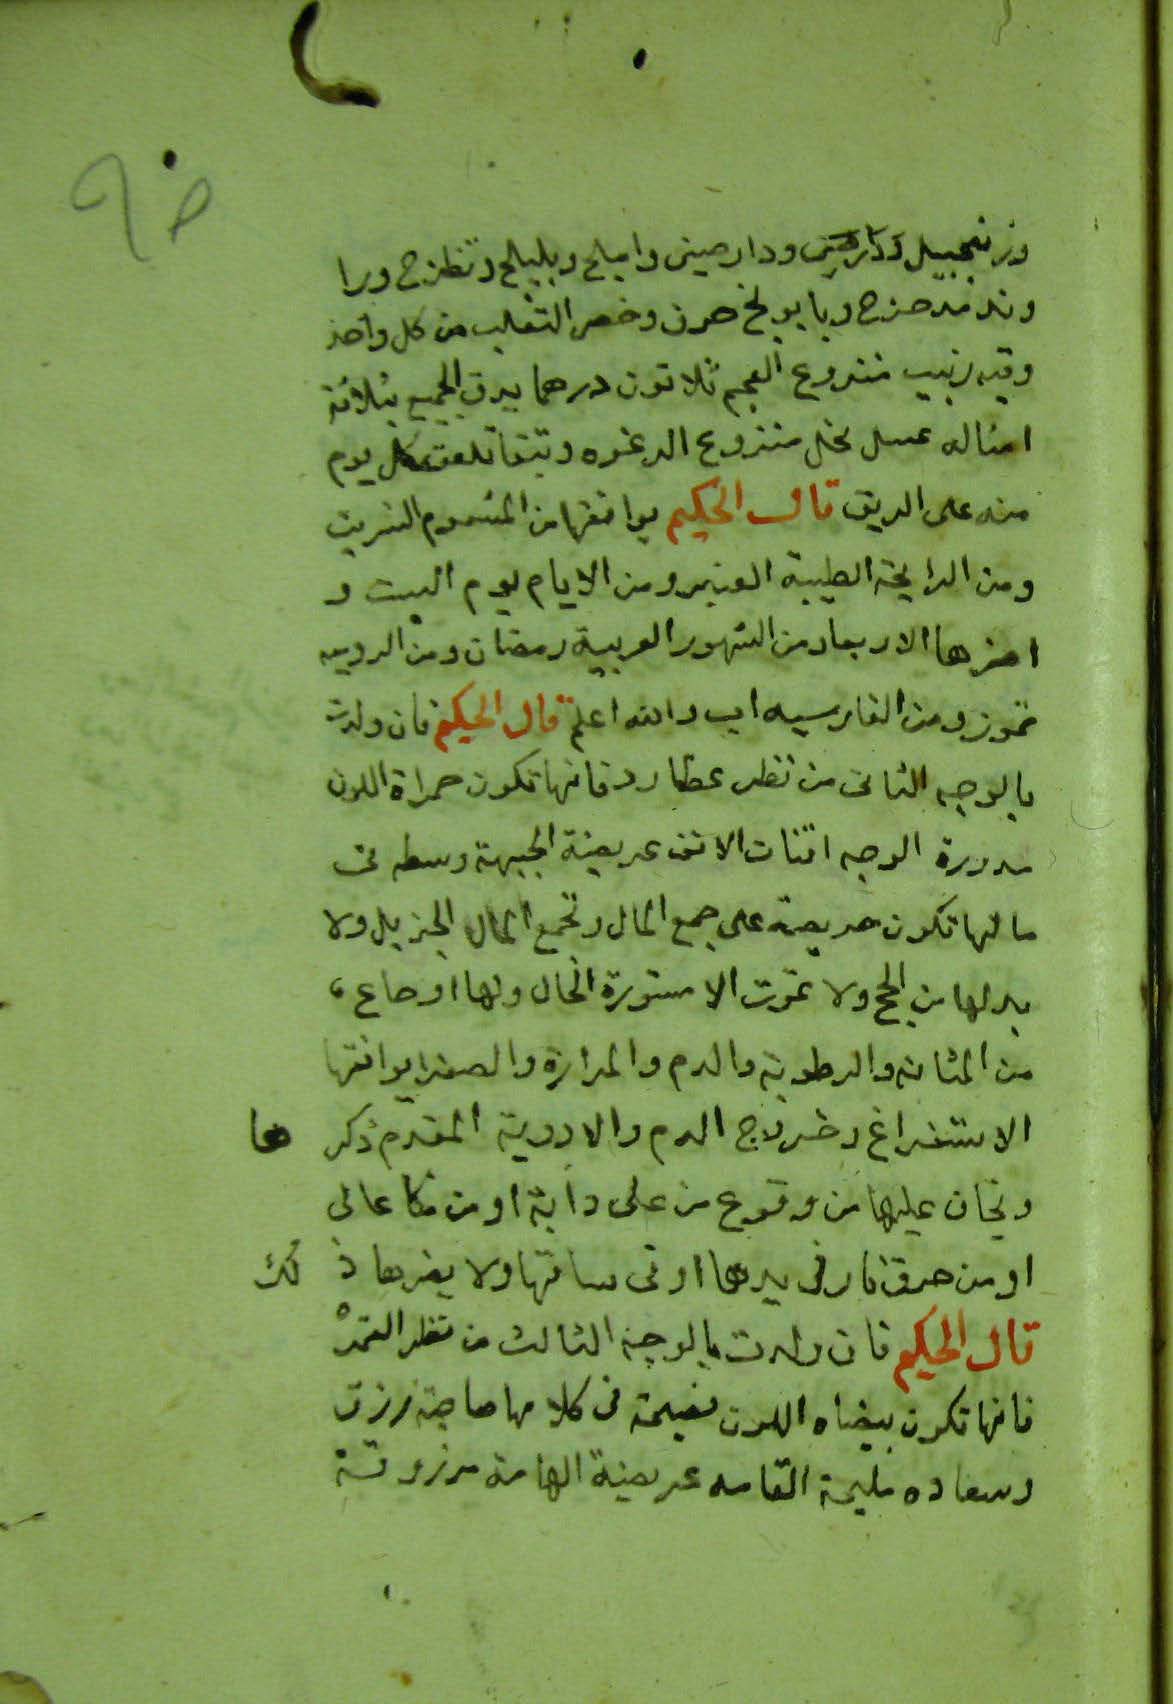 ٩٥
وزنجبيل ودارصيني واميلح وبليلح وتظرح ورا
وند مدحرج وبابونح وخصى الثعلب من كل واحد
وقيه زبيب منزوع العجم ثلاثون درهما يدق الجميع بثلاثة
امثاله عسل نحل منزوع الرغوه وتبقا تلعق كل يوم
منه على الريق قال الحكيم يوافقها من المشموم النسرين
ومن الرايحة الطيبة العنبر ومن الايام يوم السبت و
اخرها الاربعا ومن الشهور العربية رمضان ومن الروميه
تموز ومن الفارسيه اب والله اعلم قال الحكيم فان ولدت
بالوجه الثانى من نظر عطارد فانها تكون حمراة اللون
مدورة الوجه اقنات الانف عريضة الجبهة وسطه فى
مالها تكون حريصة على جمع المال وتجمع المال الجزيل ولا
بد لها من الحج ولا تموت الا مستورة الحال ولها اوجاع
من المثانه والرطوبة والدم والمرارة والصفرا يوافقها
الاستفراغ وخروج الدم والادوية المقدم ذكر ها
ويخاف عليها من وقوع من على دابة او من مكا عالى
او من حرق نار فى يدها او فى ساقها ولا يضرها ذ لك
قال الحكيم فان ولدت بالوجه الثالث من نظر القمر
فانها تكون بيضاه اللون فصيحة فى كلامها صاحبة رزق
وسعاده مليحة القامه عريضة الهامة مرزوقة